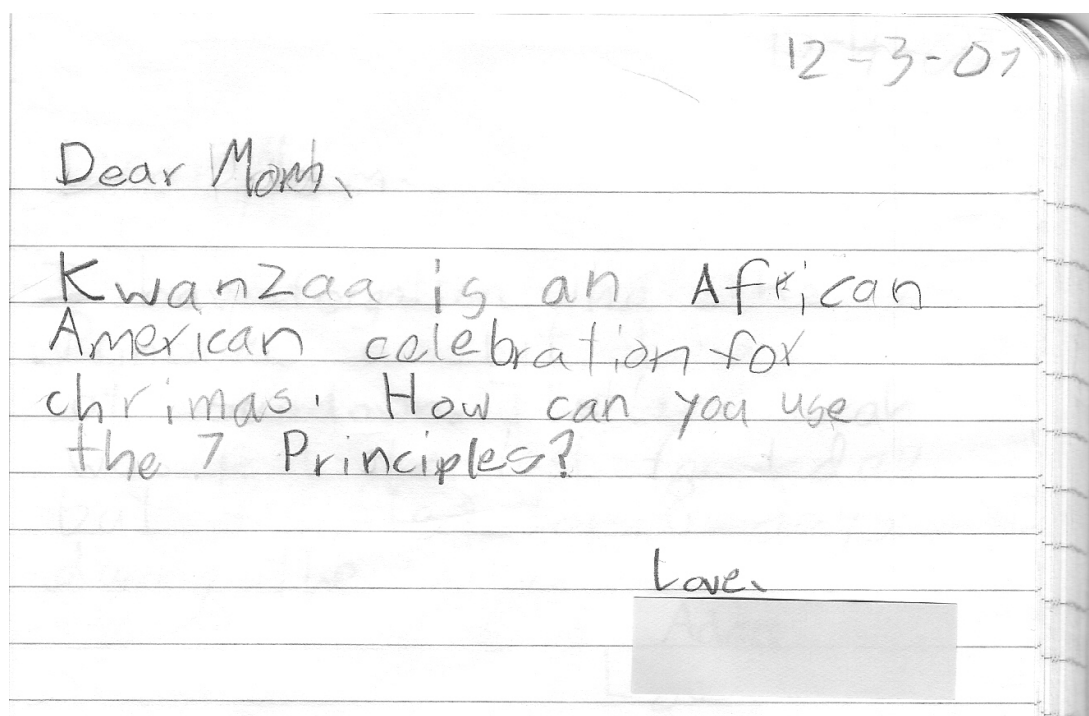 12-3-07
Dear Mom,
Kwanzaa is an African
American celebration for
chrimas. How can you use
the 7 Principles?
Love,